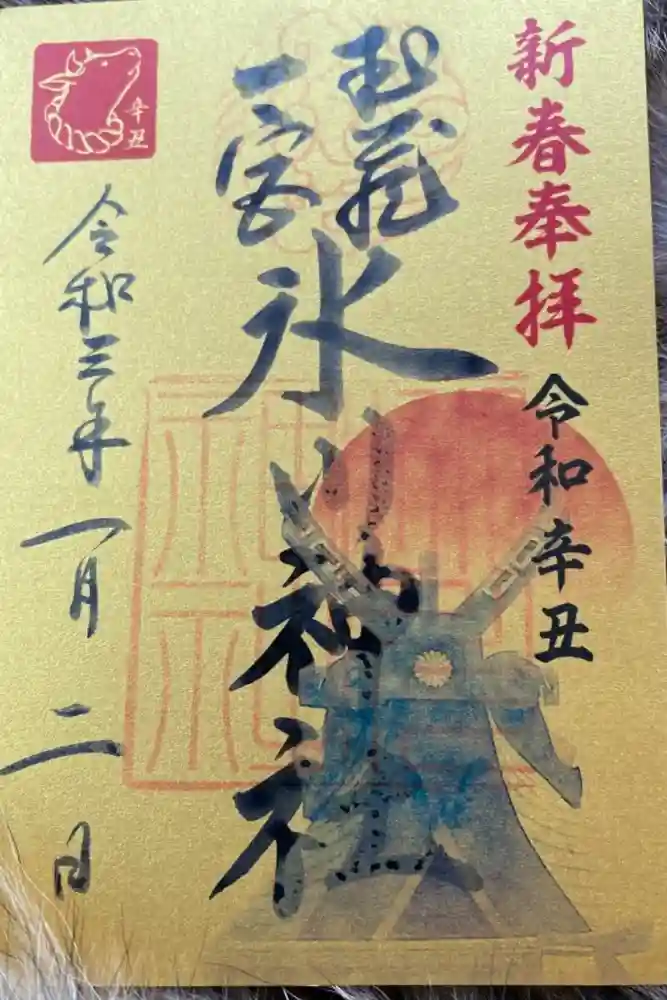 新春奉拝
令和辛丑
武蔵
一宮
氷川神社
辛丑
令和三年一月二日